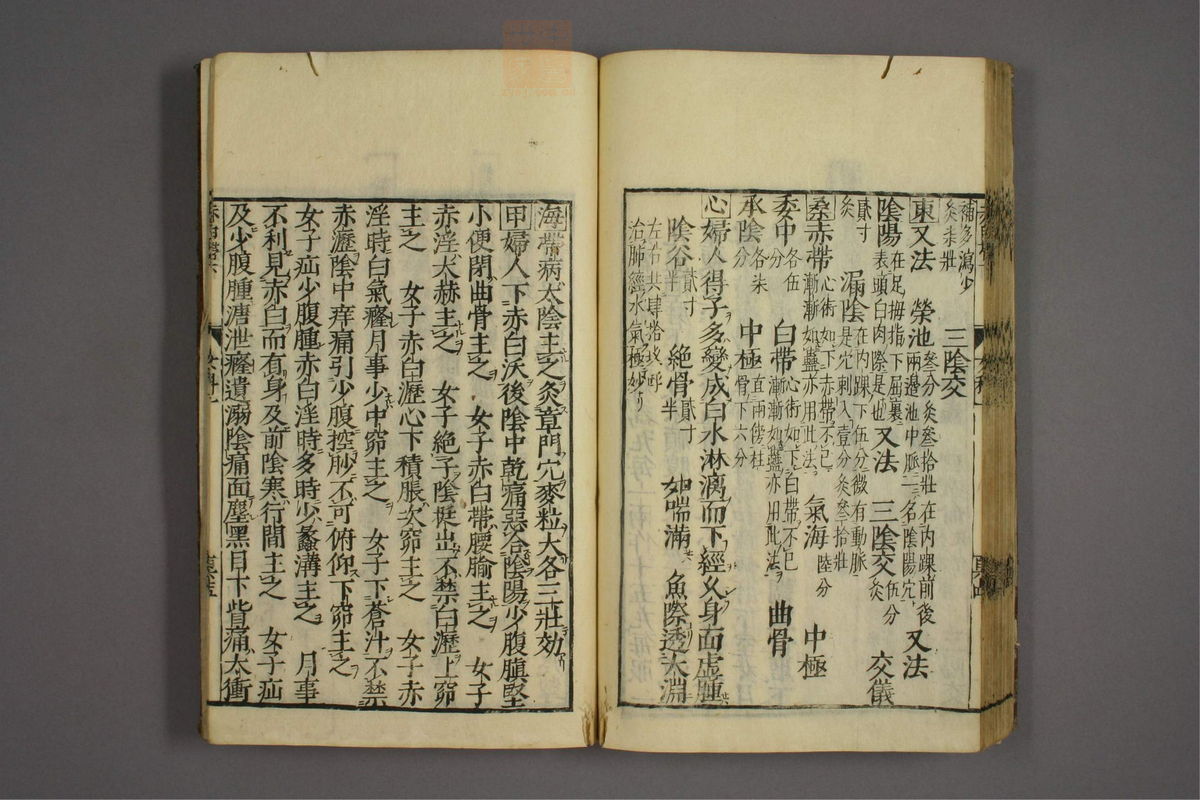 補多瀉少
灸柒壯 三陰交
東又法 榮池 叄分灸叄拾壯在內踝前後兩邊池中脈一名陰陽穴 又法
陰陽 在足拇指下屈裏表頭白肉際是也 又法 三陰交 伍分灸 交儀
貳寸灸 漏陰 在內踝下伍分微有動脈是穴刺入壹分灸叄拾壯
桑赤帶 心術如下赤帶不已漸漸如蠱亦用此法 氣海 陸分 中極
委中 各伍分 白帶 心術如下白帶不已漸漸如蠱亦用此法 曲骨
承陰 各柒分 中極 直兩傍柱骨下六分
心婦人得子多變成白水淋漓而下經久身面虛腫
陰谷 貳寸半 絶骨 貳寸半 如喘滿 魚際透太淵
左右共肆拾
治肺 水氣極妙
海帶病太陰主之灸章門穴麥粒大各三壯效
甲婦人下赤白沃後陰中乾痛惡合陰陽少腹䐜堅
小便閉曲骨主之 女子赤白帶腰腧主之 女子
赤淫大赫主之 女子絶子陰挺出不禁白瀝上窌
主之 女子赤白瀝心下積脹次窌主之 女子赤
淫時白氣癃月事少中窌主之 女子下蒼汁不禁
赤瀝陰中痒痛引少腹控䏚不可俯仰下窌主之
女子疝少腹腫赤白淫時多時少蠡溝主之 月事
不利見赤白而有身及前陰寒行間主之 女子疝
及少腹腫溏泄癃遺溺陰痛面塵黑目下眥痛太衝